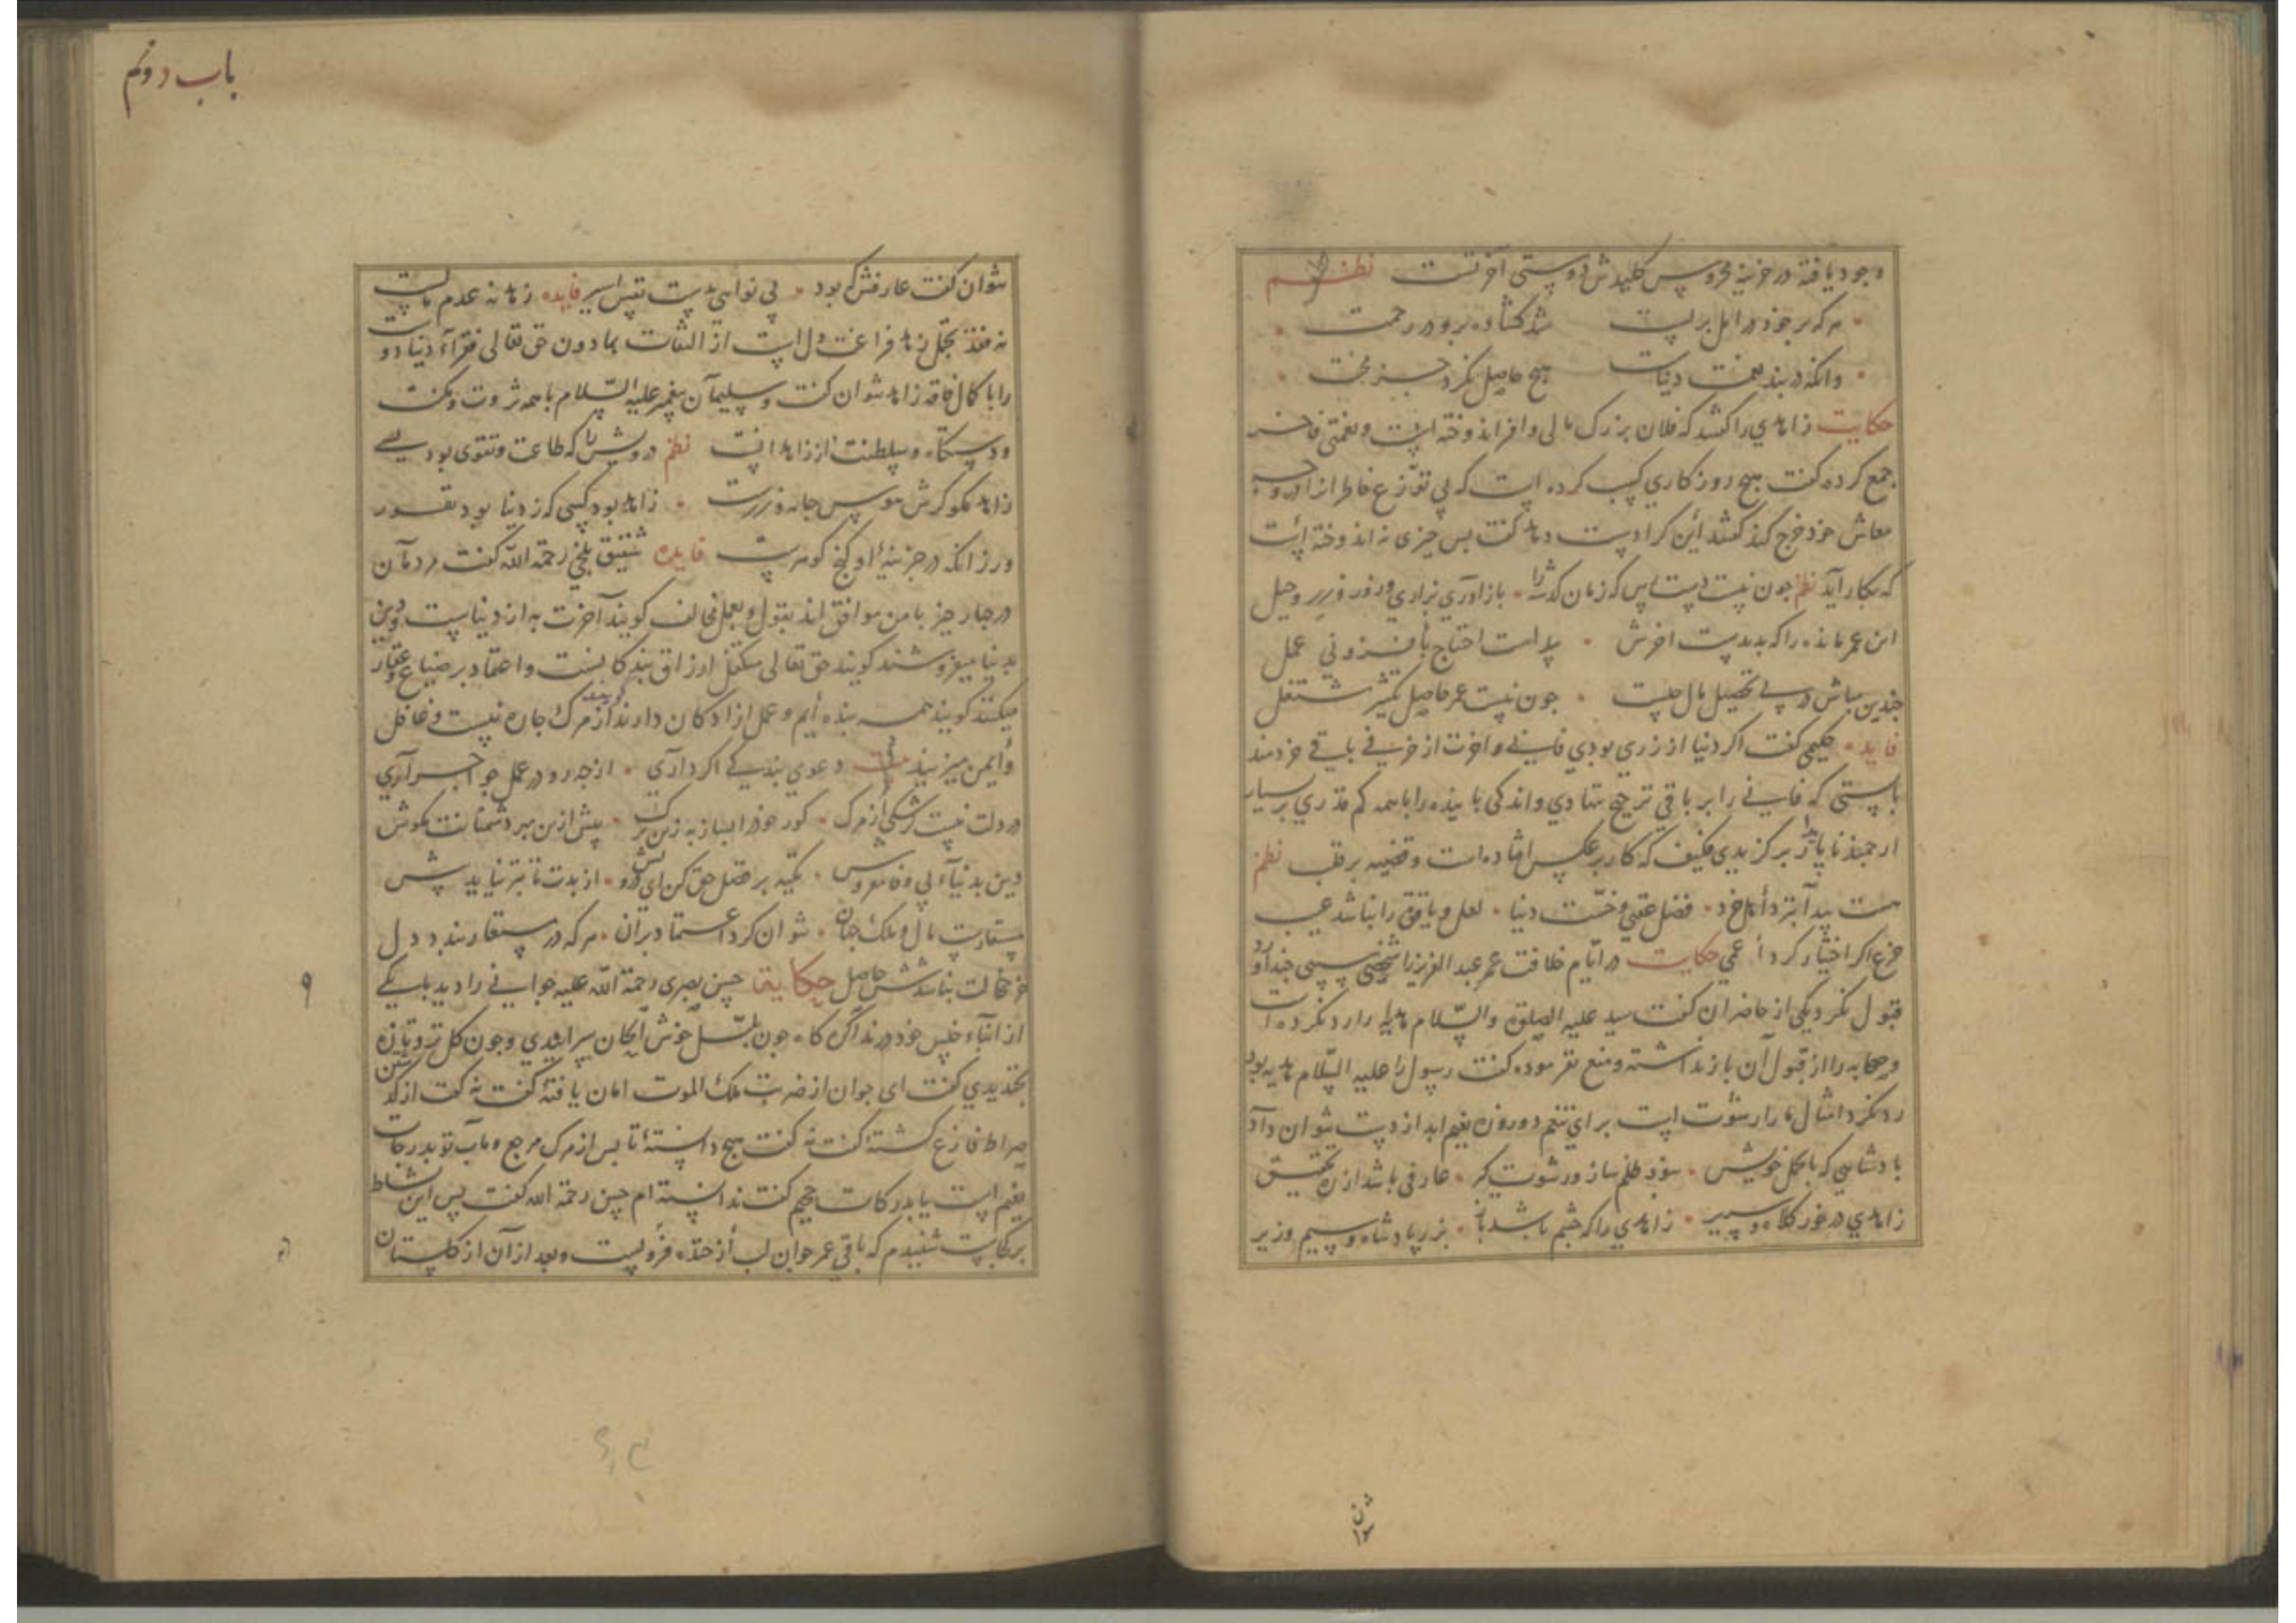 وجود یافته در خزینه محروس کلیدش دوستی آخرتست نظم
هر که بر خود در امل بر بست شد کشاده برو در رحمت
وانکه در بند نعمت دنیاست هیچ حاصل نکرد جز محنت
حکایت زاهدی را کفتند که فلان بزرک مالی وافر اندوخته است و نعمتی فاخر
جمع کرده کفت هیچ روزکاری کسب کرده است که بی توزع خاطر انرا در وجه
معاش خود خرج کند کفتند این کرا دست دهد کفت بس چیزی نه اندوخته است
که بکار آید نظم چون نیست دست پس که زمان کذشته را بازآوری بزاری و زور و زر و حیل
این عمر مانده را که بدیدست اخرش بدامت احتاج بافزونی عمل
چندین مباش در پی تحصیل مال چیست چون نیست عمر حاصل مشتغل
فایده حکیمی کفت اکر دنیا از زری بودی فانی و اخرت از خزفی باقی خردمند
بایستی که فانی را بر باقی ترجیح ننهادی و اندکی باینده را با همه کم قدری بر بسیار
ارجمند ناپایدار برکزیدی فکیف که کار بر عکس افتاده است و قضیه بر قلب نظم
هست پیدا بنزد اهل خرد فضل عقبی و خست دنیا لعل و یاقوت را نباشد عیب
خزع اکر اختیار کرد اعمی حکایت در ایام خلافت عمر عبد العزیز را شخصی سیبی چند آورد
قبول نکرد یکی از حاضران کفت سید علیه الصلوة والسلام هدیه را رد نکرده است
وصحابه را از قبول آن باز نداشته و منع نفرموده کفت رسول را علیه السلام هدیه بود
رد نکرد امثال ما را رشوت است برای تنعم دو روزه نعیم ابد از دست نتوان داد
بادشاهی که با تجمل خویش سوزد ظلم ساز و رشوت کیر عارفی باشد از ره تحقیق
زاهدی در خور کلاه و سریر زاهدی را که چشم باشد باز بزر پادشاه و سیم وزیر
باب دوم
نتوان کفت عارفش که بود بی نوایی بدست نفس اسیر فایده زهد نه عدم مالست
نه فقد تجمل زهد فراغت دل است از التفات بمادون حق تعالی فقراء دنیا دوست
را با کمال فاقه زاهد نتوان کفت و سلیمان پیغمبر علیه السلام با همه ثروت و مکنت
و دستکاه و سلطنت از زاهدانست نظم درویش را که طاعت و تقوی بود بسی
زاهد مکو کرش هوس جامه و زرست زاهد بود کسی که ز دنیا بود نفور
ور زانکه در خزینه او کنج کوهرست فایده شقیق بلخی رحمة الله کفت مردمان
در چهار چیز با من موافق اند بقول و بعمل مخالف کویند آخرت به از دنیاست و دین
بدنیا میفروشند کویند حق تعالی متکفل ارزاق بندکانست و اعتماد بر ضیاع و عقار
میکنند کویند همه بنده ایم و عمل ازادکان دارند کویند از مرک چاره نیست و غافل
وایمن میزیند دعوی بندکی اکر داری از چه رو در عمل چو احراری
در دلت نیست شکی از مرک کور خود را بساز به زین برک پیش ازین مبر دشمنانت مکوش
دین بدنیاء بی وفا مفروش تکیه بر فضل حق کن ای درویش از بدت تا بتر نیاید پیش
مستعارست مال و ملک جهان نتوان کرد اعتماد بر آن هر که در مستعار بندد دل
جز خجالت نباشدش حاصل حکایت حسن بصری رحمة الله علیه جوانی را دید با یکی
از ابناء جنس خود در نداکره کاه چون بلبل خوش الحان سراییدی و چون کل تر و تازه
بخندیدی کفت ای جوان از ضربت ملک الموت امان یافتهٔ کفت نه کفت از کذشتن
صراط فارغ کشتهٔ کفت نه کفت هیچ دانستهٔ تا بس از مرک مرجع و ماب تو بدرجات
نعیم است یا بدرکات جحیم کفت ندانسته ام حسن رحمة الله کفت پس این نشاط
بر کجاست شنیدم که باقی عمر جوان لب از خنده فرو بست و بعد از آن از کلستان
۹